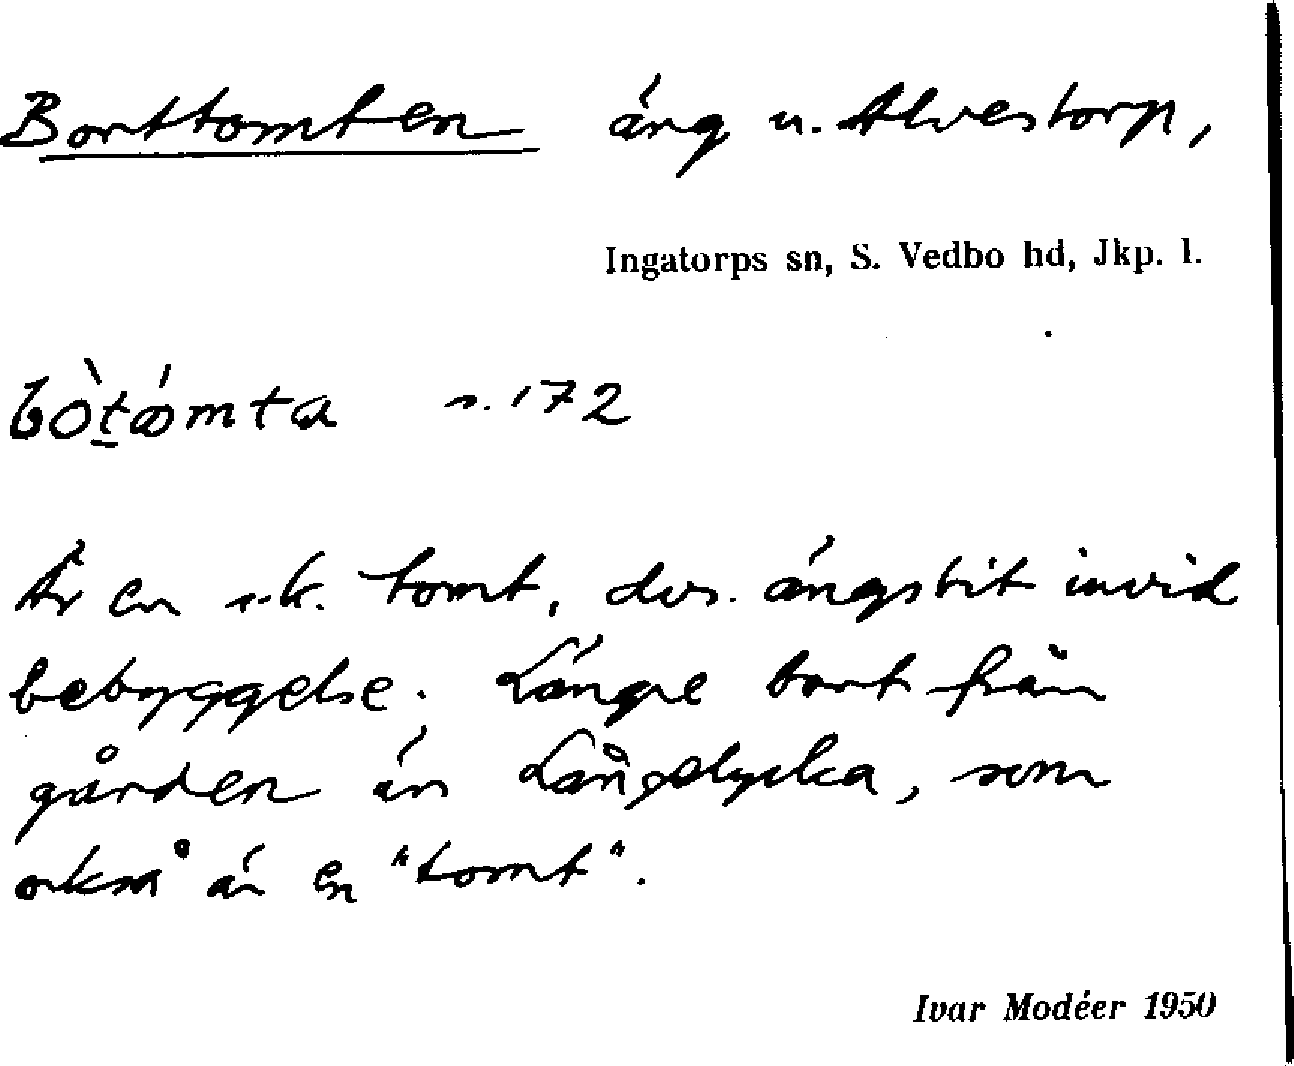 Borttomten äng u. Alvestorp,
Ingatorps sn, S. Vedbo hd, Jkp. l.
bòtómta s. 172
Är en s.k. tomt, dvs. ängsbit invid
bebyggelse. Längre bort från
gården än Långelycka, som
också är en "tomt".
Ivar Modéer 1950